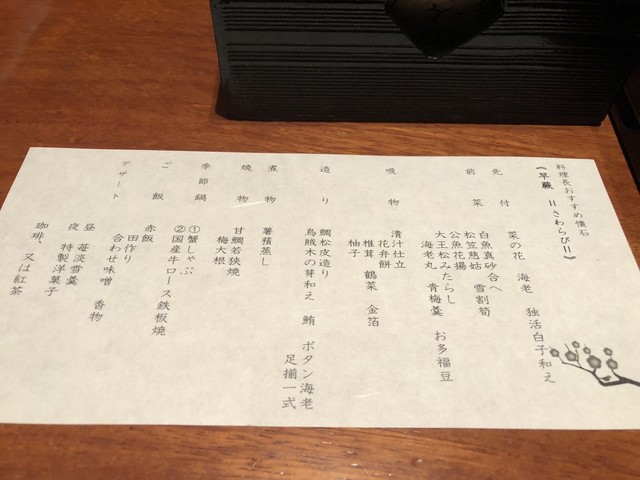 料理長おすすめ懐石
《早蕨 =さわらび=》
先付 菜の花 海老 独活白子和え
前菜 白魚真砂合へ 雪割筍
松笠慈姑
公魚花揚
大王松みたらし お多福豆
海老丸 青梅羹
吸物 潰汁仕立
花弁餅
椎茸 鶴菜 金箔
柚子
造り 鯛松皮造り 鮪 ボタン海老
烏賊木の芽和え 足揃一式
煮物 薯蕷蒸し
焼物 甘鯛若狭焼
梅大根
季節鍋 ①蟹しゃぶ
②国産牛ロース鉄板焼
ご飯 赤飯
田作り
合わせ味噌 香物
デザート 昼 苺淡雪羹
夜 特製洋菓子
珈琲、又は紅茶